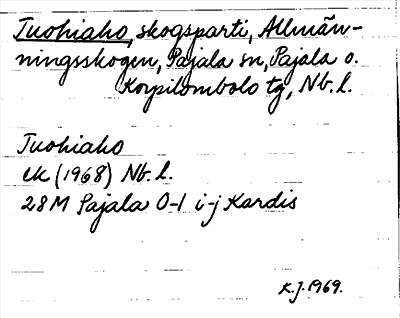 Tuohiaho, skogsparti, Allmän-
ningsskogen, Pajala sn, Pajala o.
Korpilombolo tg, Nb. l.
Tuohiaho
ek (1968) Nb. l.
28M Pajala 0-1 i-j Kardis
K.J. 1969.